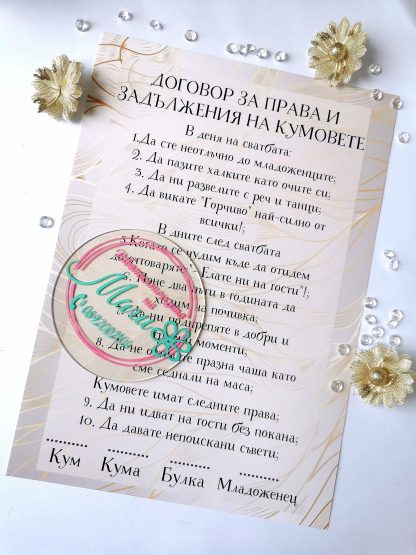 ДОГОВОР ЗА ПРАВА И
ЗАДЪЛЖЕНИЯ НА КУМОВЕТЕ
В деня на сватбата:
1.Да сте неотлъчно до младоженците;
2. Да пазите халките като очите си;
3. Да ни развелите с реч и танци;
4. Да викате "Горчиво" най-силно от
всички!;
В дните след сватбата
5.Когато се чудим къде да отидем
да отговаряте:" Елате ни на гости"!;
6. Поне два пъти в годината да
ходим на почивка;
ни подкрепяте в добри и
моменти;
8. Да не празна чаша като
сме седнали на маса;
Кумовете имат следните права;
9. Да ни идват на гости без покана;
10. Да давате непоискани съвети;
Кум Кума Булка Младоженец
Мани